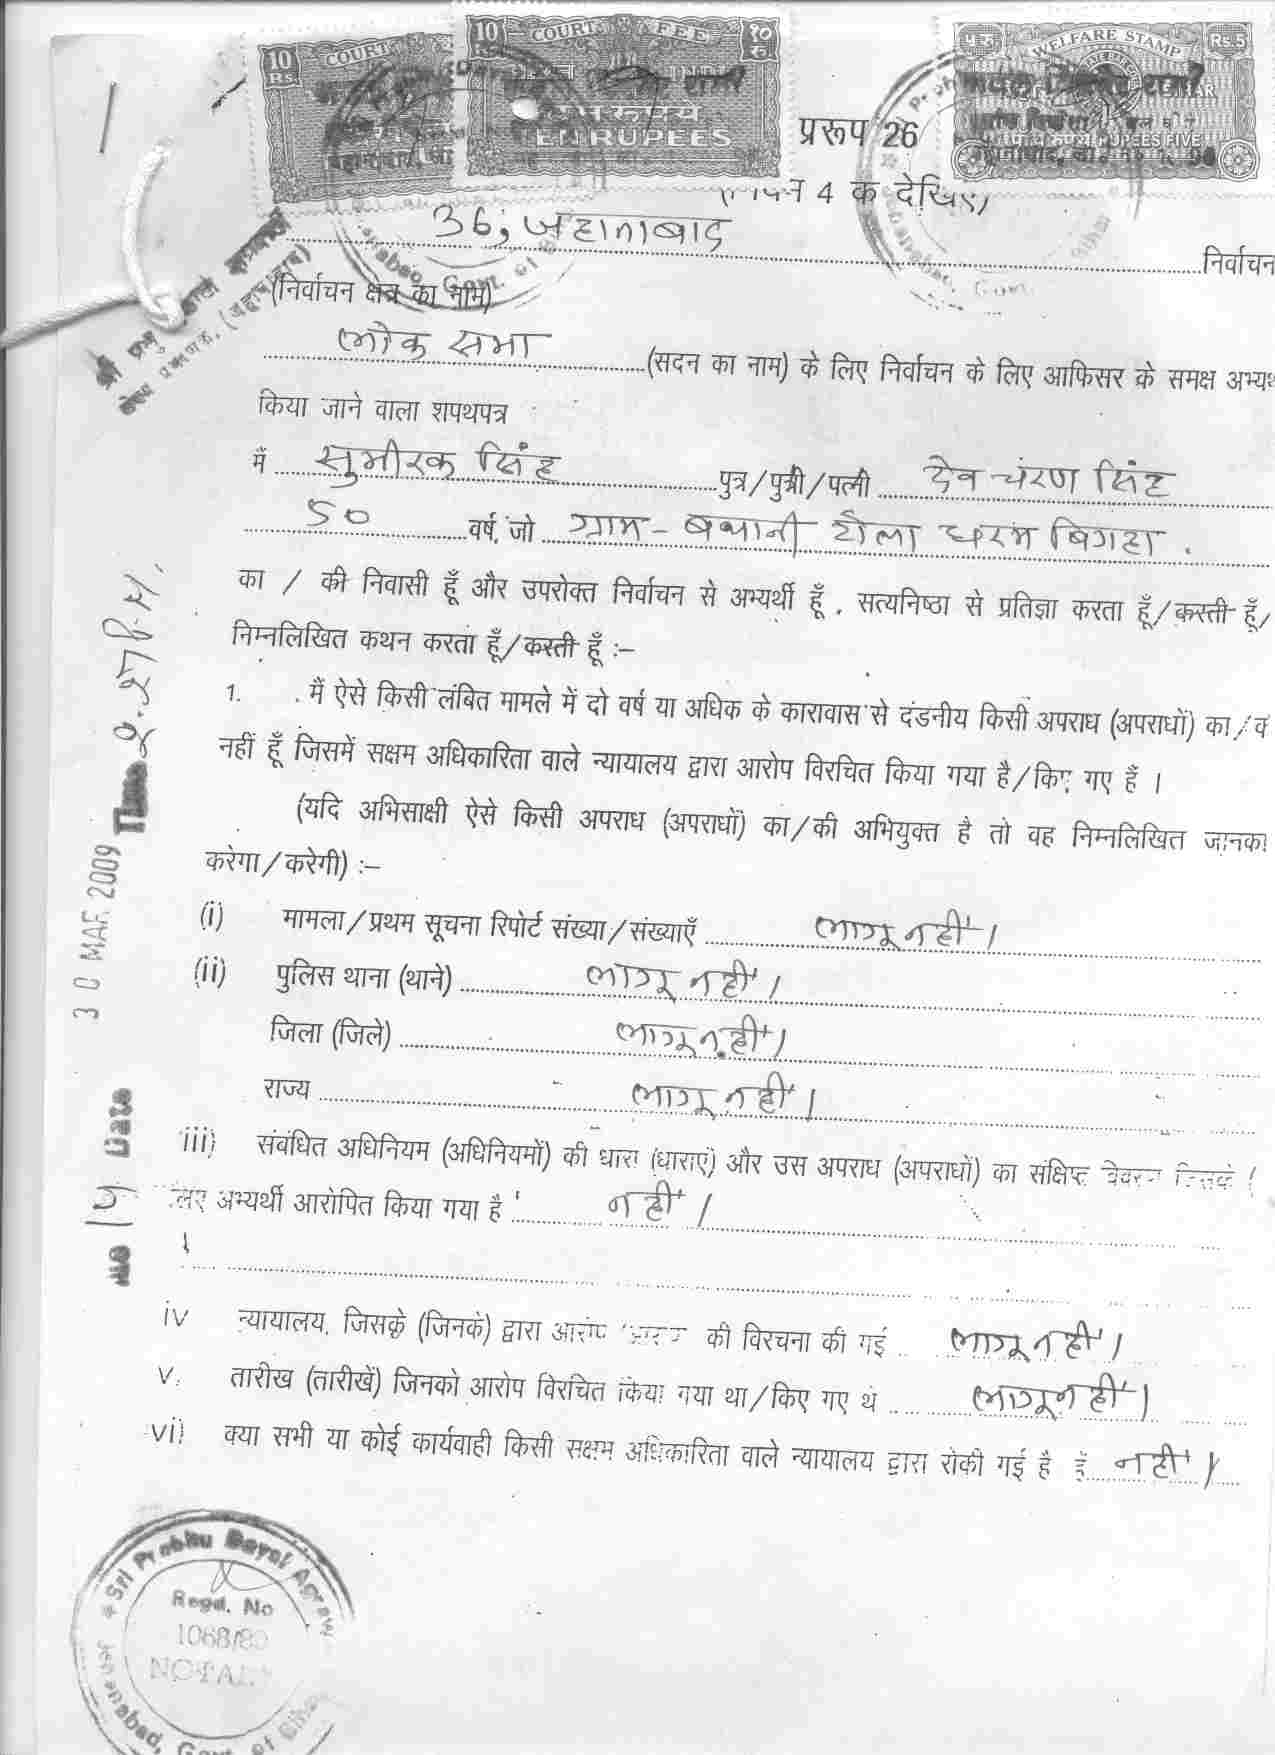 10 Rs. COURT
10 Rs. COURT FEE १० रु.
दस रुपय
TEN RUPEES
WELFARE STAMP Rs. 5
RUPEES FIVE
प्ररूप 26
4 क देखिए)
36, जहानाबाद निर्वाचन
(निर्वाचन क्षेत्र का नाम)
लोक सभा (सदन का नाम) के लिए निर्वाचन के लिए आफिसर के समक्ष अभ्यर्थ
किया जाने वाला शपथपत्र
मैं सुमीरक सिंह पुत्र/पुत्री/पत्नी देव चंरण सिंह
50 वर्ष, जो ग्राम - बथानी टोला धरम बिगहा .
का / की निवासी हूँ और उपरोक्त निर्वाचन से अभ्यर्थी हूँ , सत्यनिष्ठा से प्रतिज्ञा करता हूँ/करती हूँ/
निम्नलिखित कथन करता हूँ/करती हूँ :–
1. मैं ऐसे किसी लंबित मामले में दो वर्ष या अधिक के कारावास से दंडनीय किसी अपराध (अपराधों) का/व
नहीं हूँ जिसमें सक्षम अधिकारिता वाले न्यायालय द्वारा आरोप विरचित किया गया है/किए गए हैं ।
(यदि अभिसाक्षी ऐसे किसी अपराध (अपराधों) का/की अभियुक्त है तो वह निम्नलिखित जानका
करेगा/करेगी) :–
(i) मामला/प्रथम सूचना रिपोर्ट संख्या/संख्याएँ लागू नहीं ।
(ii) पुलिस थाना (थाने) लागू नहीं ।
जिला (जिले) लागू नहीं ।
राज्य लागू नहीं ।
iii) संबंधित अधिनियम (अधिनियमों) की धारा (धाराएं) और उस अपराध (अपराधों) का संक्षिप्त विवरण जिसके
लिए अभ्यर्थी आरोपित किया गया है नहीं ।
iv न्यायालय, जिसके (जिनके) द्वारा आरोप की विरचना की गई लागू नहीं ।
v. तारीख (तारीखें) जिनको आरोप विरचित किया गया था/किए गए थे लागू नहीं ।
vi) क्या सभी या कोई कार्यवाही किसी सक्षम अधिकारिता वाले न्यायालय द्वारा रोकी गई है हैं नहीं ।
Date 30 MAR 2009 Time
Sri Prabhu Dayal Agraw
Regd. No
1068/80
NOTAR
Jehanabad, Govt. of Bihar